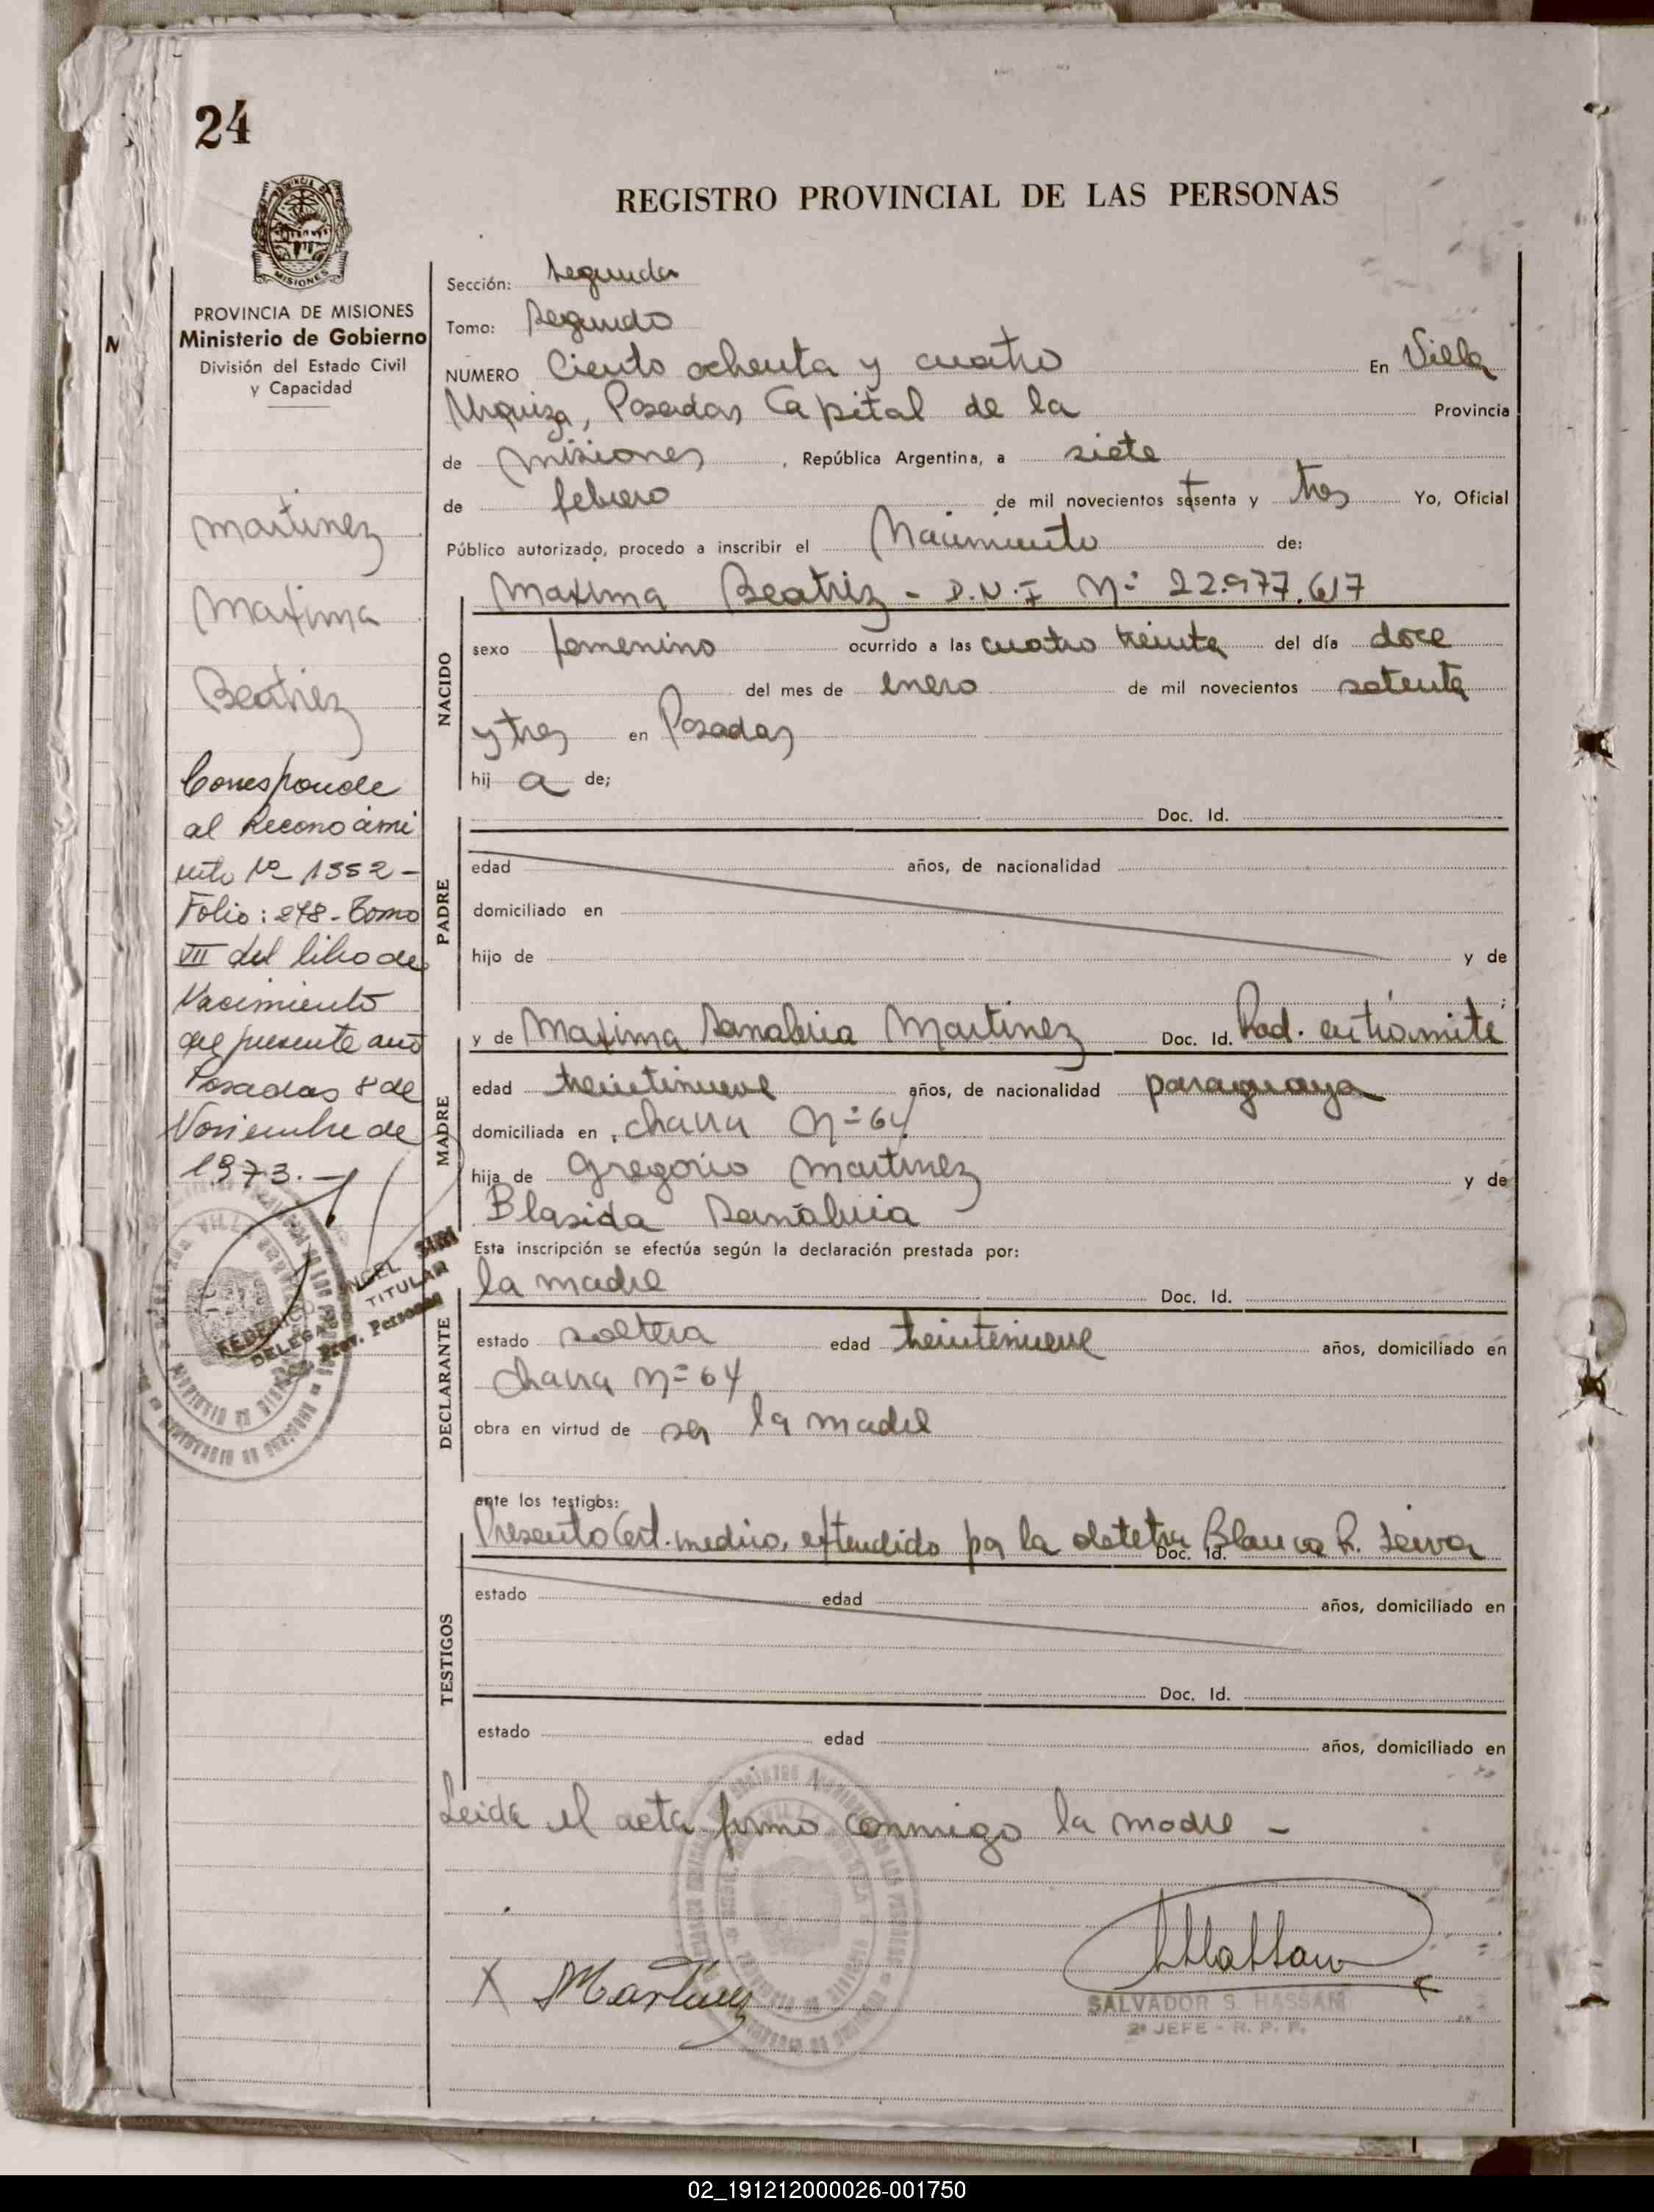 24
PROVINCIA DE MISIONES
Ministerio de Gobierno
División del Estado Civil
y Capacidad
martinez
Maxima
Beatriz
Corresponde
al Reconocimi
ento Nº 1352 -
Folio: 278 - Tomo
VII del libro de
Nacimiento
del presente año
Posadas 8 de
Noviembre de
1973.-
REGISTRO PROVINCIAL DE LAS PERSONAS
Sección: Segunda
Tomo: Segundo
NUMERO Ciento ochenta y cuatro En Villa
Urquiza, Posadas Capital de la Provincia
de Misiones, República Argentina, a siete
de febrero de mil novecientos setenta y tres Yo, Oficial
Público autorizado, procedo a inscribir el Nacimiento de:
Maxima Beatriz - D.N.I Nº 22.977.617
NACIDO
sexo femenino ocurrido a las cuatro treinta del día doce
del mes de enero de mil novecientos setenta
y tres en Posadas
hij a de;
Doc. Id.
PADRE
edad años, de nacionalidad
domiciliado en
hijo de y de
;
MADRE
y de Maxima Sanabria Martinez Doc. Id. Rad. en trámite
edad treintinueve años, de nacionalidad paraguaya
domiciliada en chacra Nº 64
hija de Gregorio Martinez y de
Blasida Sanabria
Esta inscripción se efectúa según la declaración prestada por:
la madre Doc. Id.
DECLARANTE
estado soltera edad treintenueve años, domiciliado en
Chacra Nº 64
obra en virtud de ser la madre
ante los testigos:
Presento Cert. medico, extendido por la obstetra Blanca R. Leiva
Doc. Id.
TESTIGOS
estado edad años, domiciliado en
Doc. Id.
estado edad años, domiciliado en
Leida el acta firmó conmigo la madre -
X Martínez
SALVADOR S. HASSAN
2º JEFE - R. P. P.
FEDERICO ANGEL
DELEGADO TITULAR
Prov. Personas
02_191212000026-001750